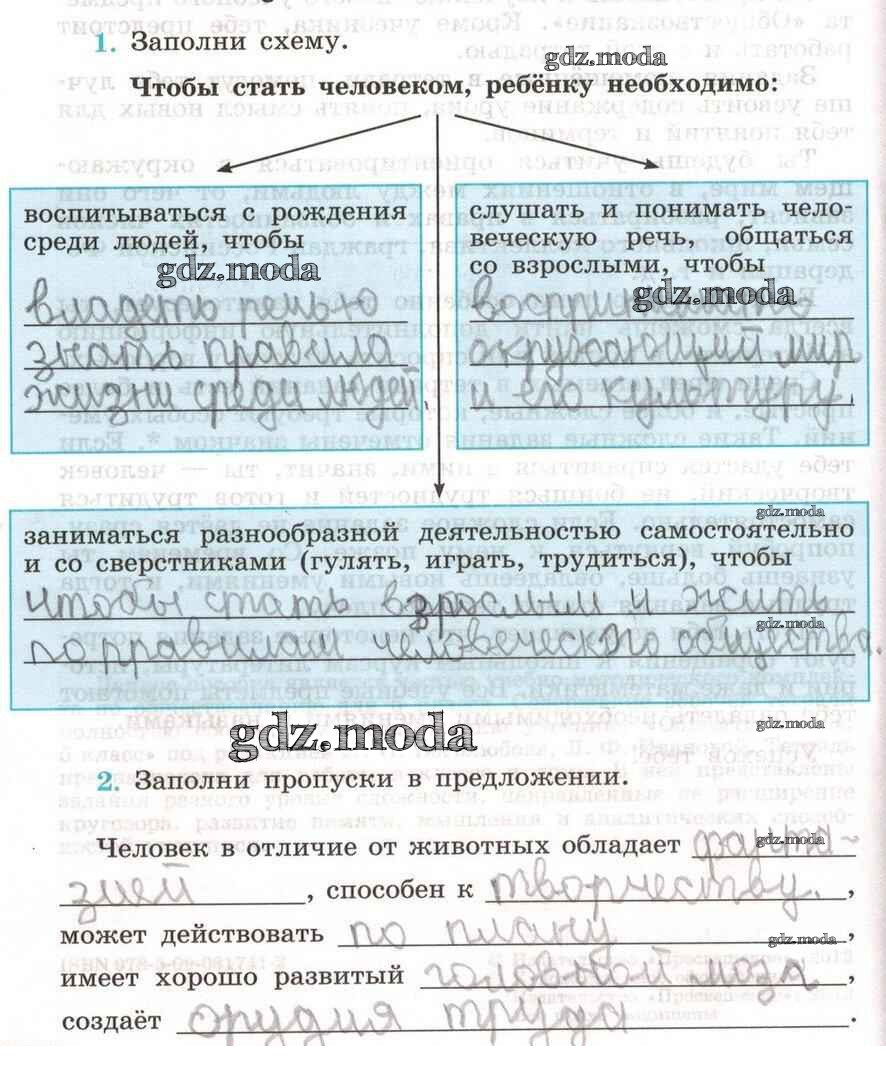 1. Заполни схему.
gdz.moda
Чтобы стать человеком, ребёнку необходимо:
воспитываться с рождения
среди людей, чтобы
gdz.moda
владеть речью
знать правила
жизни среди людей.
слушать и понимать чело-
веческую речь, общаться
со взрослыми, чтобы
gdz.moda
воспринимать
окружающий мир
и его культуру.
gdz.moda
заниматься разнообразной деятельностью самостоятельно
и со сверстниками (гулять, играть, трудиться), чтобы
чтобы стать взрослыми и жить
gdz.moda
по правилам человеческого общества.
gdz.moda
gdz.moda
2. Заполни пропуски в предложении.
gdz.moda
Человек в отличие от животных обладает фанта-
зией, способен к творчеству.,
может действовать по плану,
gdz.moda
имеет хорошо развитый головной мозг,
создаёт орудия труда.